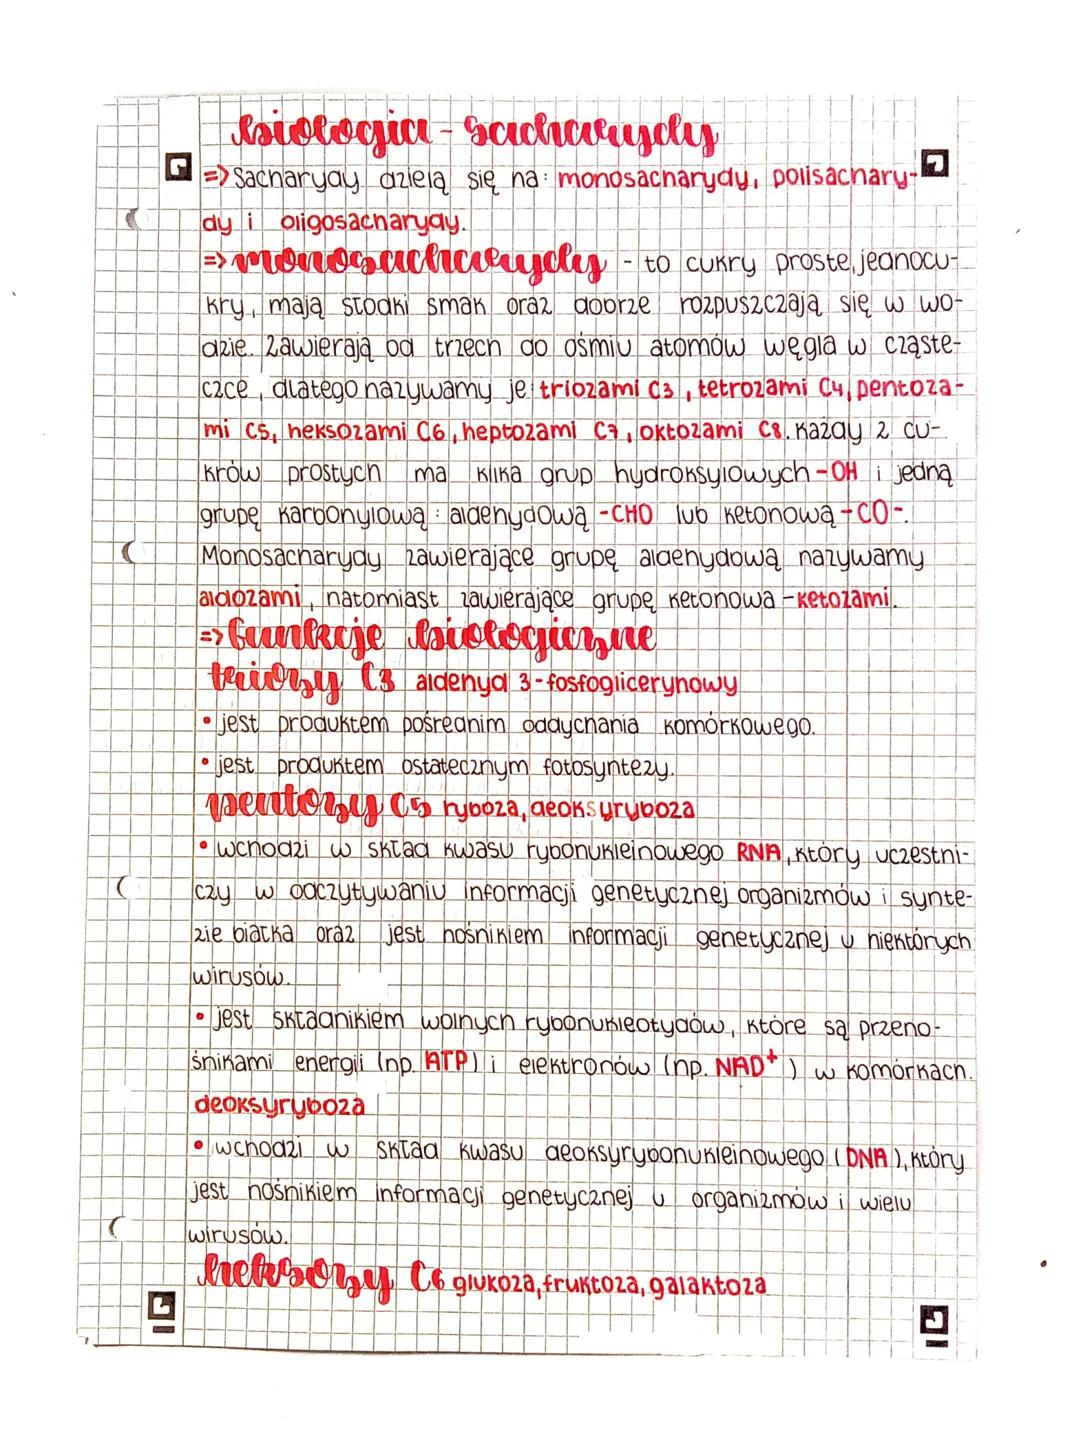 biologia - Sacharydy
=> Sacharydy dzielą się na: monosacharydy, polisachary-
dy i oligosacharydy.
=> monosacharydy - to cukry proste, jednocu-
kry, mają słodki smak oraz dobrze rozpuszczają się w wo-
dzie. Zawierają od trzech do ośmiu atomów węgla w cząste-
czce, dlatego nazywamy je: triozami C3, tetrozami C4, pentoza-
mi C5, heksozami C6, heptozami C7, oktozami C8. Każdy z cu-
krów prostych ma kilka grup hydroksylowych -OH i jedną
grupę karbonylową: aldehydową -CHO lub ketonową -CO-.
Monosacharydy zawierające grupę aldehydową nazywamy
aldozami, natomiast zawierające grupę ketonowa - ketozami.
=> funkcje biologiczne
triozy C3 aldehyd 3-fosfoglicerynowy
• jest produktem pośrednim oddychania komórkowego.
• jest produktem ostatecznym fotosyntezy.
pentozy C5 ryboza, deoksyryboza
• wchodzi w skład kwasu rybonukleinowego RNA, który uczestni-
czy w odczytywaniu informacji genetycznej organizmów i synte-
zie białka oraz jest nośnikiem informacji genetycznej u niektórych
wirusów.
• jest składnikiem wolnych rybonukleotydów, które są przeno-
śnikami energii (np. ATP) i elektronów (np. NAD⁺) w komórkach.
deoksyryboza
• wchodzi w skład kwasu deoksyrybonukleinowego (DNA), który
jest nośnikiem informacji genetycznej u organizmów i wielu
wirusów.
heksozy C6 glukoza, fruktoza, galaktoza